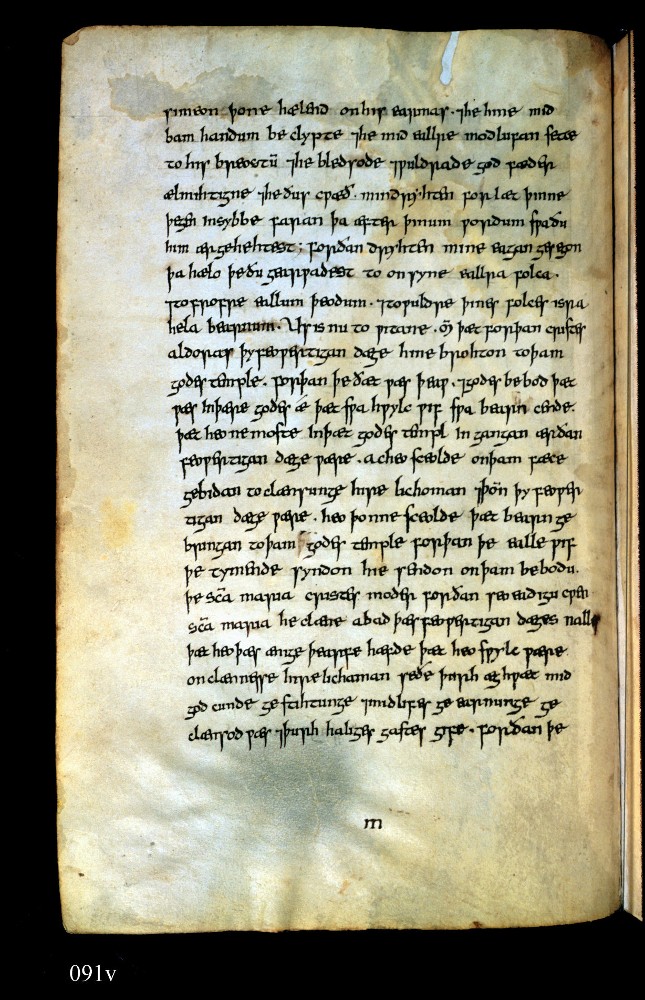 simeon þone hælend on his earmas . ⁊ he hine mid
bam handum be clypte ⁊ he mid ealre modlufan fette
to his breostū ⁊ he bledsode ⁊ wuldrade god fæder
ælmihtigne ⁊ he ðus cwæð . min dryhten for læt þinne
þegen in sybbe faran þa æfter þinum wordum swa ðu
him ær gehehtest ; forðan dryhten mine eagan gesegon
þa hælo þe ðu gearwadest to onsyne ealra folca .
⁊ to frofre eallum þeodum . ⁊ to wuldre þines folces isra
hela bearnum . Us is nu to witane . þæt forþan cristes
aldoras þy feowertigan dæge hine brohton to þam
godes temple . forþan þe ðæt wæs þeaw . ⁊ godes be bod þæt
wæs in þære godes ǽ þæt swa hwylc wif swa bearn cende .
þæt heo ne moste in þæt godes templ in gangan ær ðan
feowertigan dæge wære . ac heo sceolde on þam fæce
gebidan to clænsunge hire lichoman ⁊ þōn þy feower
tigan dæge wære . heo þonne sceolde þæt bearn ge
brungan to þam godes temple forþan þe ealle wif
þe tymende syndon hie sendon on þam bebodu .
þe sc̄a maria cristes moder forðan se eadigu
sc̄a maria he clæne abad þæs feowertigan dæges nalles
þæt heo þæs ænge þearfe hæfde þæt heo swylc wære
on clænnesse hire lichaman se ðe þurh æghwæt mid
god cunde ge stihtunge ⁊ mid lifes ge earnunge ge
clænsod wæs ⁊ þurh haliges gastes gife . forðan þe
m
091v